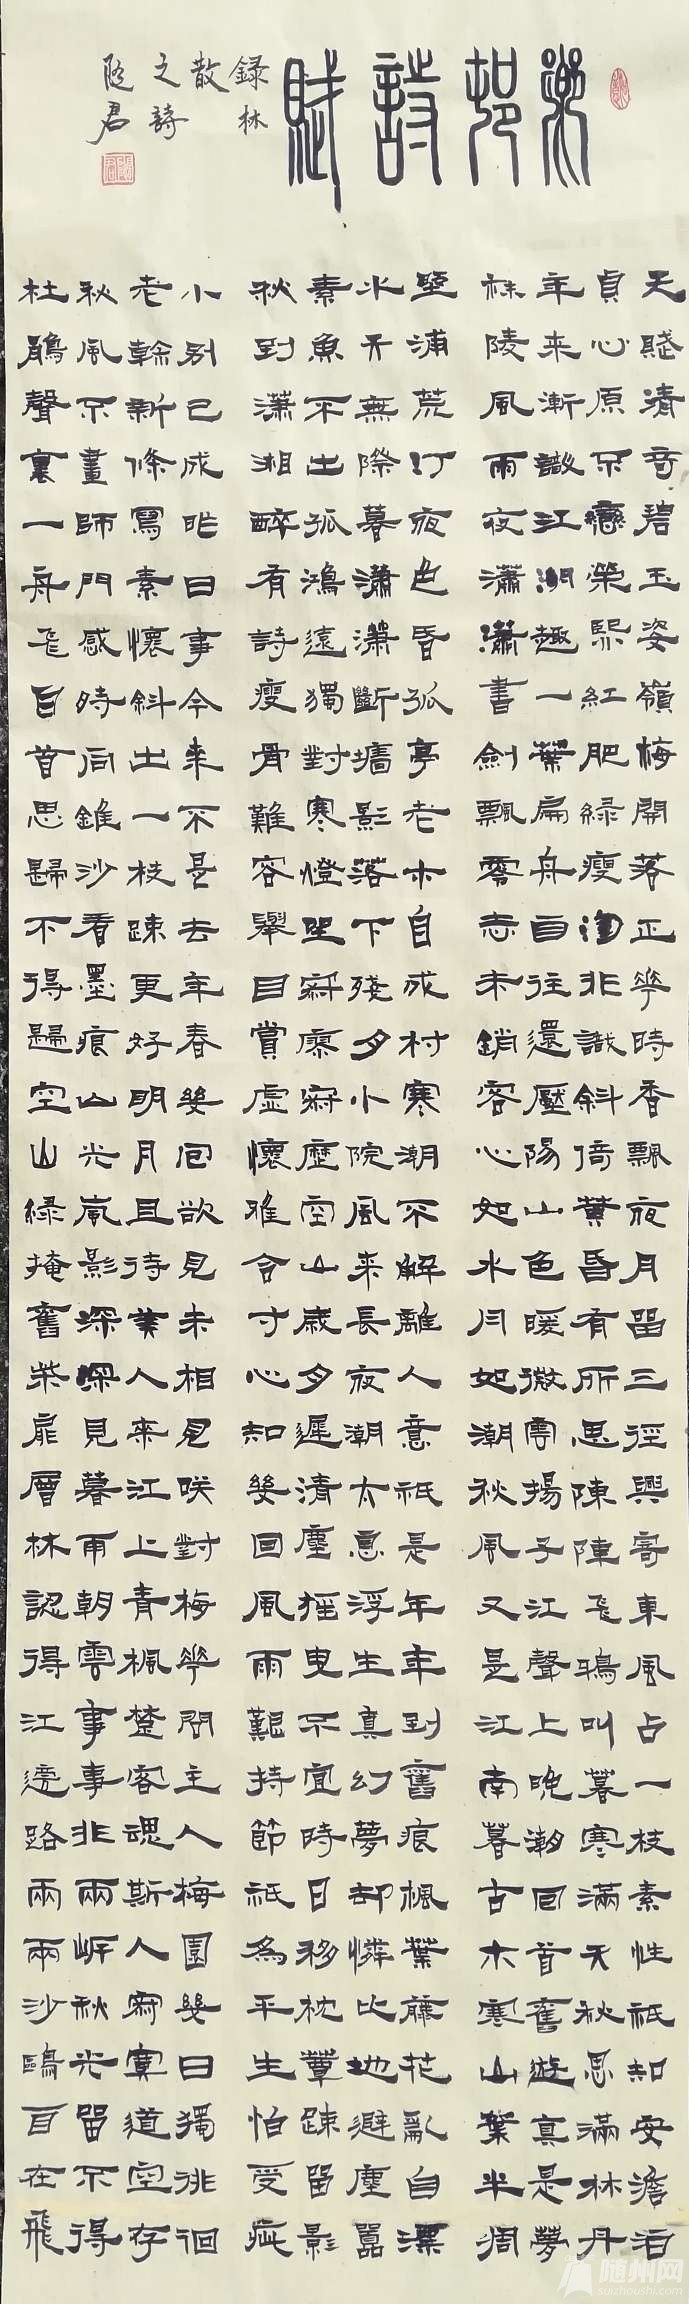 邨詩賦
録林
散
之詩
随君
天賦清奇碧玉姿嶺梅開落正花時香飄夜月留三徑興寄東風占一枝素性祇知安澹泊
貞心原不戀榮熙紅肥緑瘦渾非識斜倚黄昏有所思陳陳飛鴉叫暮寒滿天秋思滿林丹
年来漸識江湖趣一葉扁舟自往還壓陽山色暖微雲揚子江聲上晚潮回首舊遊真是夢
秣陵風雨夜瀟瀟書劍飄零志未銷客心如水月如潮秋風又是江南暮古木寒山葉半凋
浦荒汀夜色昏孤亭老木自成村寒潮不解離人意祇是年年到舊痕楓葉藤花亂自漂
水天無際暮瀟瀟斷牆影落下殘夕小院風来長夜潮太息浮生真幻夢却憐此地避塵囂
素魚不出孤鴻遠獨對寒燈坐寂寥寂歷空山歲夕遲清塵摇曳不宜時日移枕簟疎留影
秋到瀟湘醉有詩瘦骨難容舉目賞虚懷雅合寸心知幾回風雨艱持節祇為平生怕受疵
小别已成昨日事今来不是去年春幾回欲見未相見咲對梅花問主人梅園幾日獨徘徊
老榦新條寫素懷斜出一枝疎更好明月且待美人来江上青楓楚客魂斯人寂寞道空存
秋風不盡師門感時向錐沙看墨痕山光嵐影深深見暮雨朝雲事事非兩岸秋光留不得
杜鵑聲裏一舟飛白首思歸不得歸空山緑掩舊柴扉層林認得江邊路兩兩沙鷗自在飛
随州网
suizhoushi.com